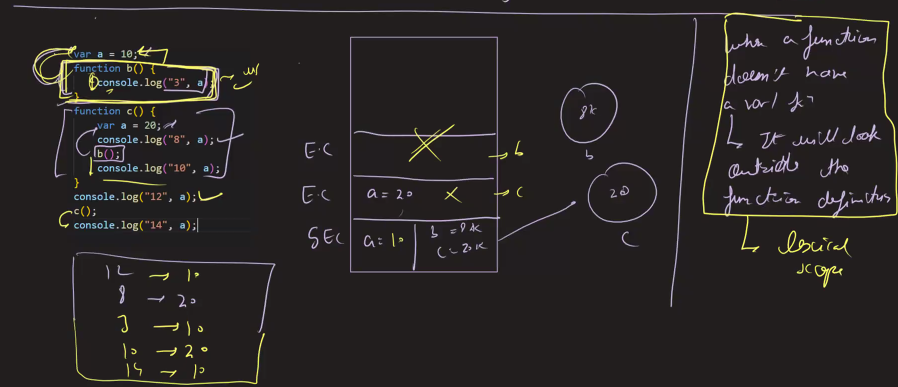 var a = 10;
function b() {
console.log("3", a)
}
function c() {
var a = 20;
console.log("8", a);
b();
console.log("10", a);
}
console.log("12", a);
c();
console.log("14", a);
12 → 10
8 → 20
3 → 10
10 → 20
14 → 10
E.C
→ b
E.C
a = 20
→ c
GEC
a = 10
b = 8k
c = 20k
8k
b
20
C
when a function
doesn't have
a var/ fn
↳ It will look
outside the
function definition
↳ lexical
scope